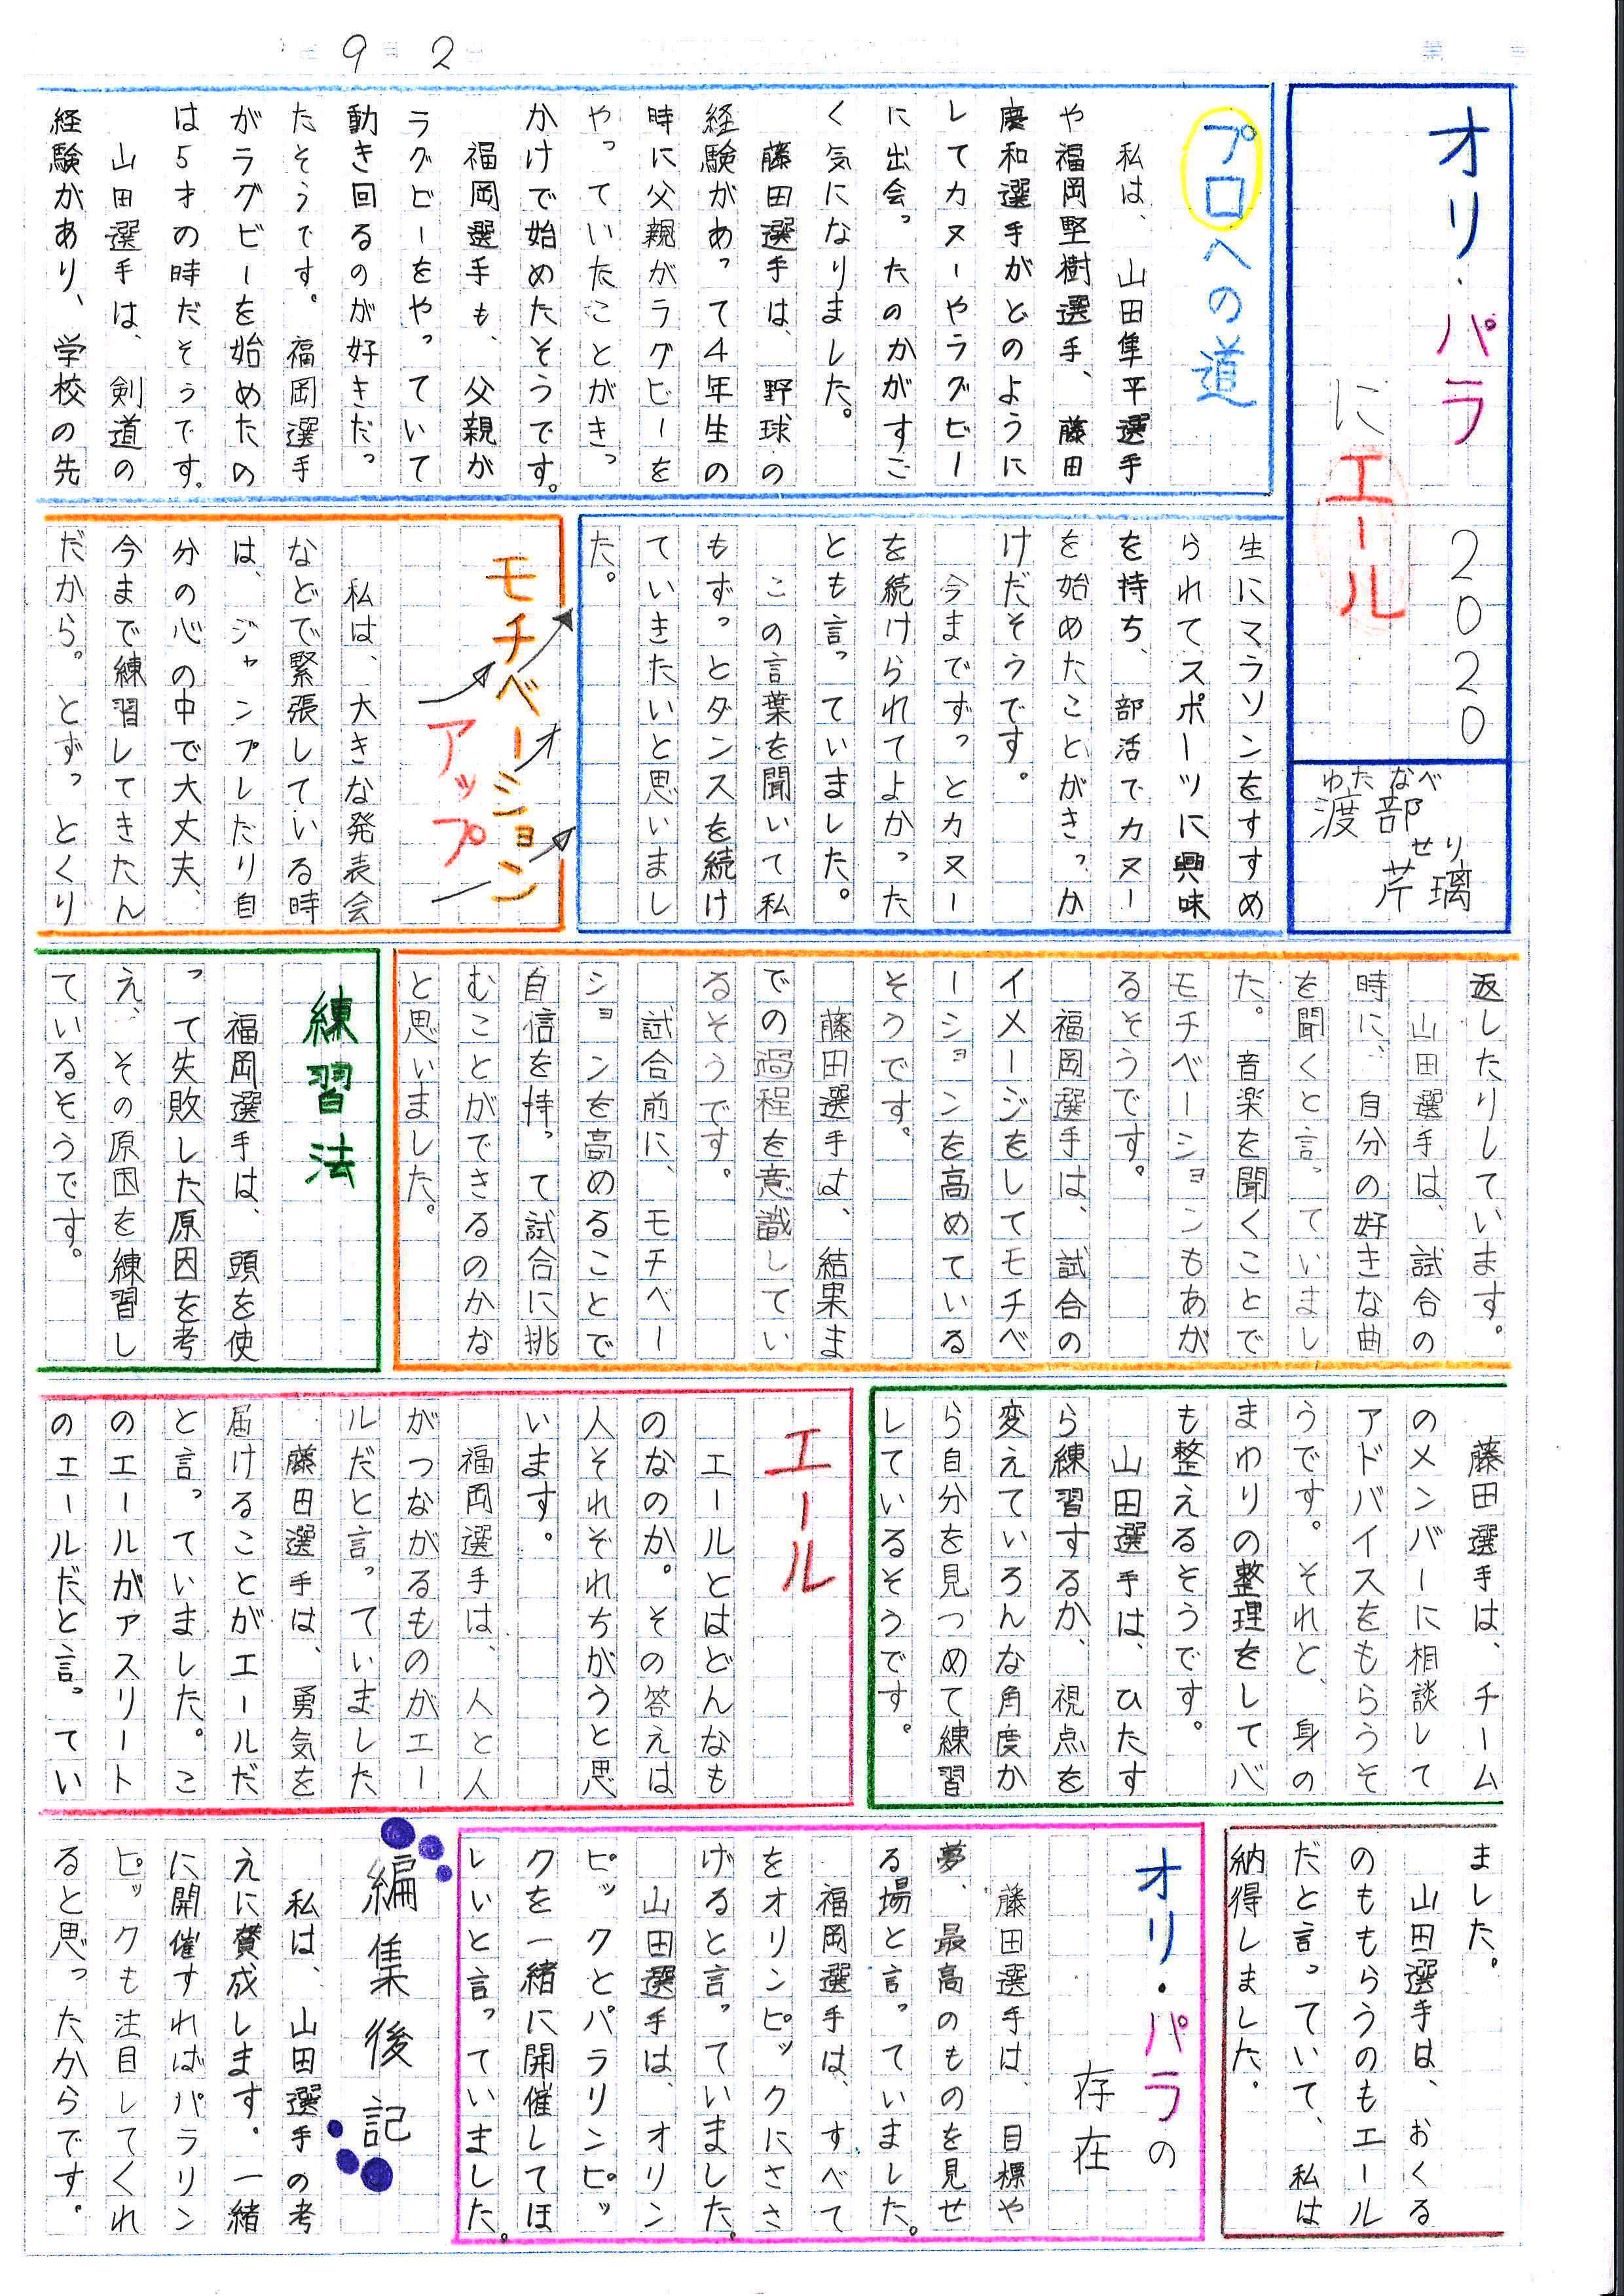 9 2
オリ・パラ
にエール
2020
わたなべ
渡部
せり
芹璃
プロへの道
私は、山田隼平選手
や福岡堅樹選手、藤田
慶和選手がどのように
してカヌーやラグビー
に出会ったのかがすご
く気になりました。
藤田選手は、野球の
経験があって4年生の
時に父親がラグビーを
やっていたことがきっ
かけで始めたそうです。
福岡選手も、父親が
ラグビーをやっていて
動き回るのが好きだっ
たそうです。福岡選手
がラグビーを始めたの
は5才の時だそうです。
山田選手は、剣道の
経験があり、学校の先
生にマラソンをすすめ
られてスポーツに興味
を持ち、部活でカヌー
を始めたことがきっか
けだそうです。
今までずっとカヌー
を続けられてよかった
とも言っていました。
この言葉を聞いて私
もずっとダンスを続け
ていきたいと思いまし
た。
モチベーション
アップ
私は、大きな発表会
などで緊張している時
は、ジャンプしたり自
分の心の中で大丈夫、
今まで練習してきたん
だから。とずっとくり
返したりしています。
山田選手は、試合の
時に、自分の好きな曲
を聞くと言っていまし
た。音楽を聞くことで
モチベーションもあが
るそうです。
福岡選手は、試合の
イメージをしてモチベ
ーションを高めている
そうです。
藤田選手は、結果ま
での過程を意識してい
るそうです。
試合前に、モチベー
ションを高めることで
自信を持って試合に挑
むことができるのかな
と思いました。
練習法
福岡選手は、頭を使
って失敗した原因を考
え、その原因を練習し
ているそうです。
藤田選手は、チーム
のメンバーに相談して
アドバイスをもらうそ
うです。それと、身の
まわりの整理をして心
も整えるそうです。
山田選手は、ひたす
ら練習するか、視点を
変えていろんな角度か
ら自分を見つめて練習
しているそうです。
エール
エールとはどんなも
のなのか。その答えは
人それぞれちがうと思
います。
福岡選手は、人と人
がつながるものがエー
ルだと言っていました
藤田選手は、勇気を
届けることがエールだ
と言っていました。こ
のエールがアスリート
のエールだと言ってい
ました。
山田選手は、おくる
のももらうのもエール
だと言っていて、私は
納得しました。
オリ・パラの
存在
藤田選手は、目標や
夢、最高のものを見せ
る場と言っていました。
福岡選手は、すべて
をオリンピックにささ
げると言っていました。
山田選手は、オリン
ピックとパラリンピッ
クを一緒に開催してほ
しいと言っていました。
編集後記
私は、山田選手の考
えに賛成します。一緒
に開催すればパラリン
ピックも注目してくれ
ると思ったからです。